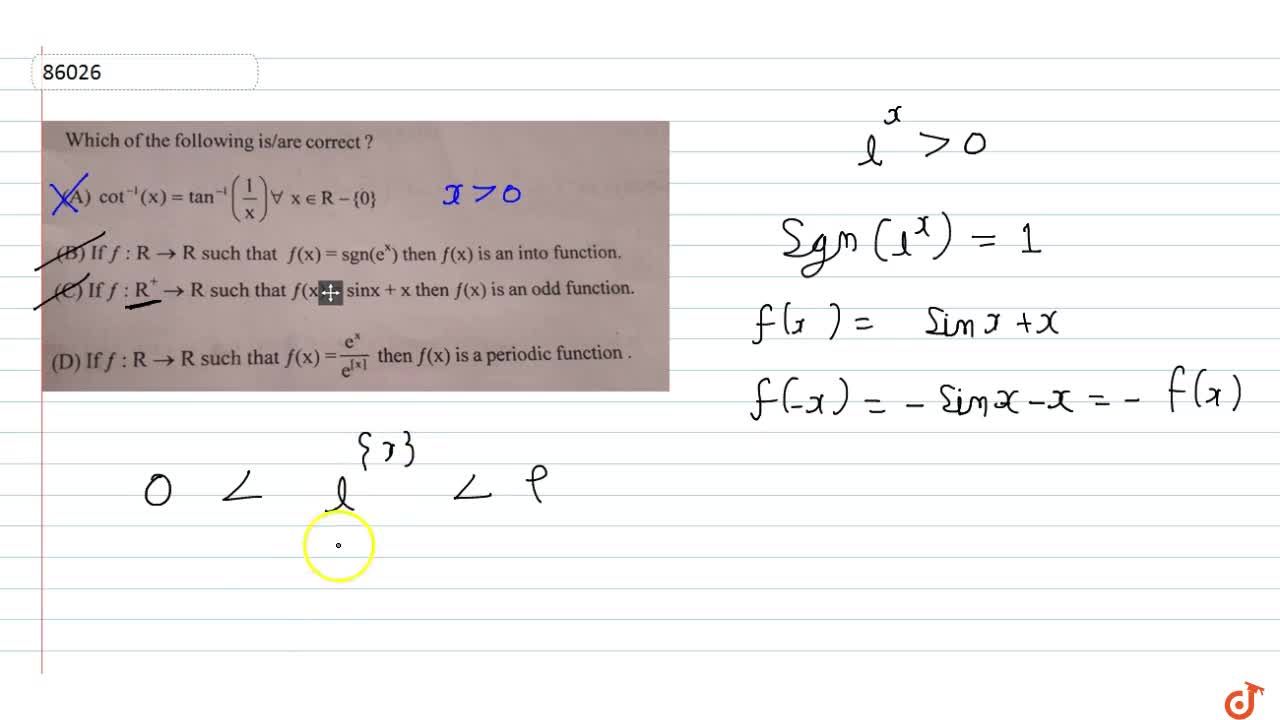 86026
Which of the following is/are correct ?
(A) cot⁻¹(x) = tan⁻¹(1/x) ∀ x ∈ R – {0} x > 0
(B) If f : R → R such that f(x) = sgn(eˣ) then f(x) is an into function.
(C) If f : R⁺ → R such that f(x sinx + x then f(x) is an odd function.
(D) If f : R → R such that f(x) = eˣ/e^[x] then f(x) is a periodic function .
eˣ > 0
Sgn (eˣ) = 1
f(x) = Sinx + x
f(-x) = - Sinx - x = - f(x)
0 < e^{x} < e